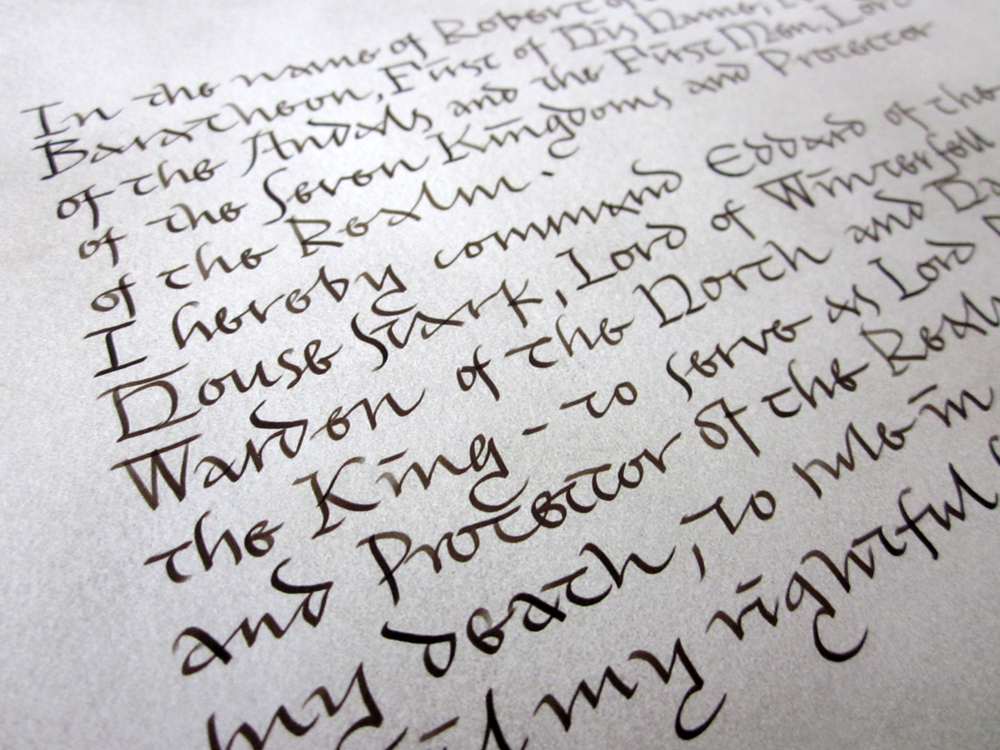 In the name of Robert of
Baratheon, First of His Name,
of the Andals and the First Men, Lord
of the Seven Kingdoms and Protector
of the Realm.
I hereby command Eddard of the
House Stark, Lord of Winterfell
Warden of the North and
the King - to serve as Lord
and Protector of the Realm
my death, to rule in
my rightful